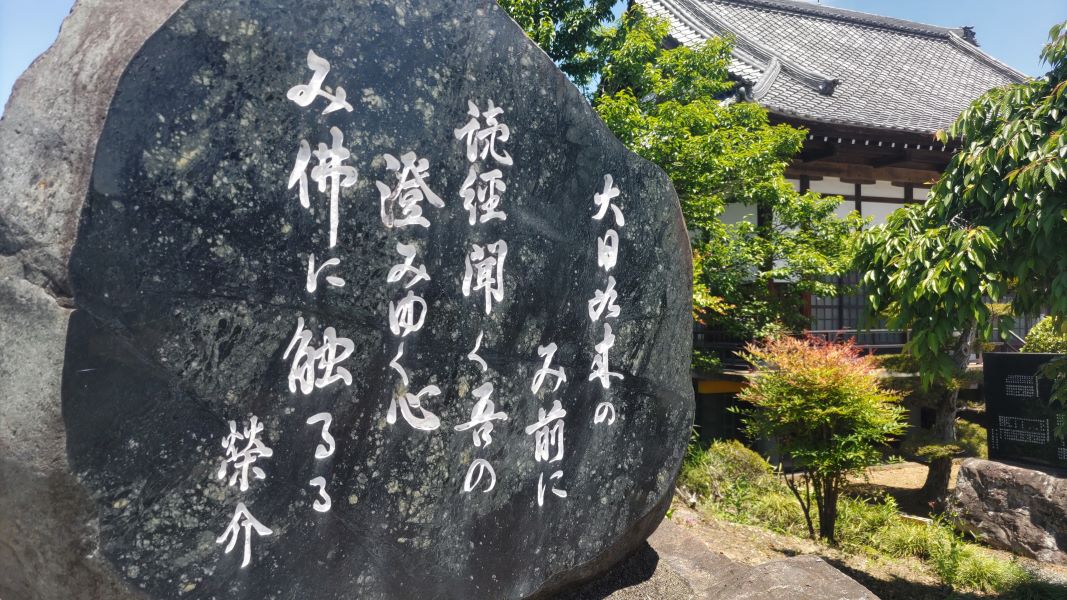 大日如来の
み前に
読経聞く吾の
澄みゆく心
み佛に触るる
榮介